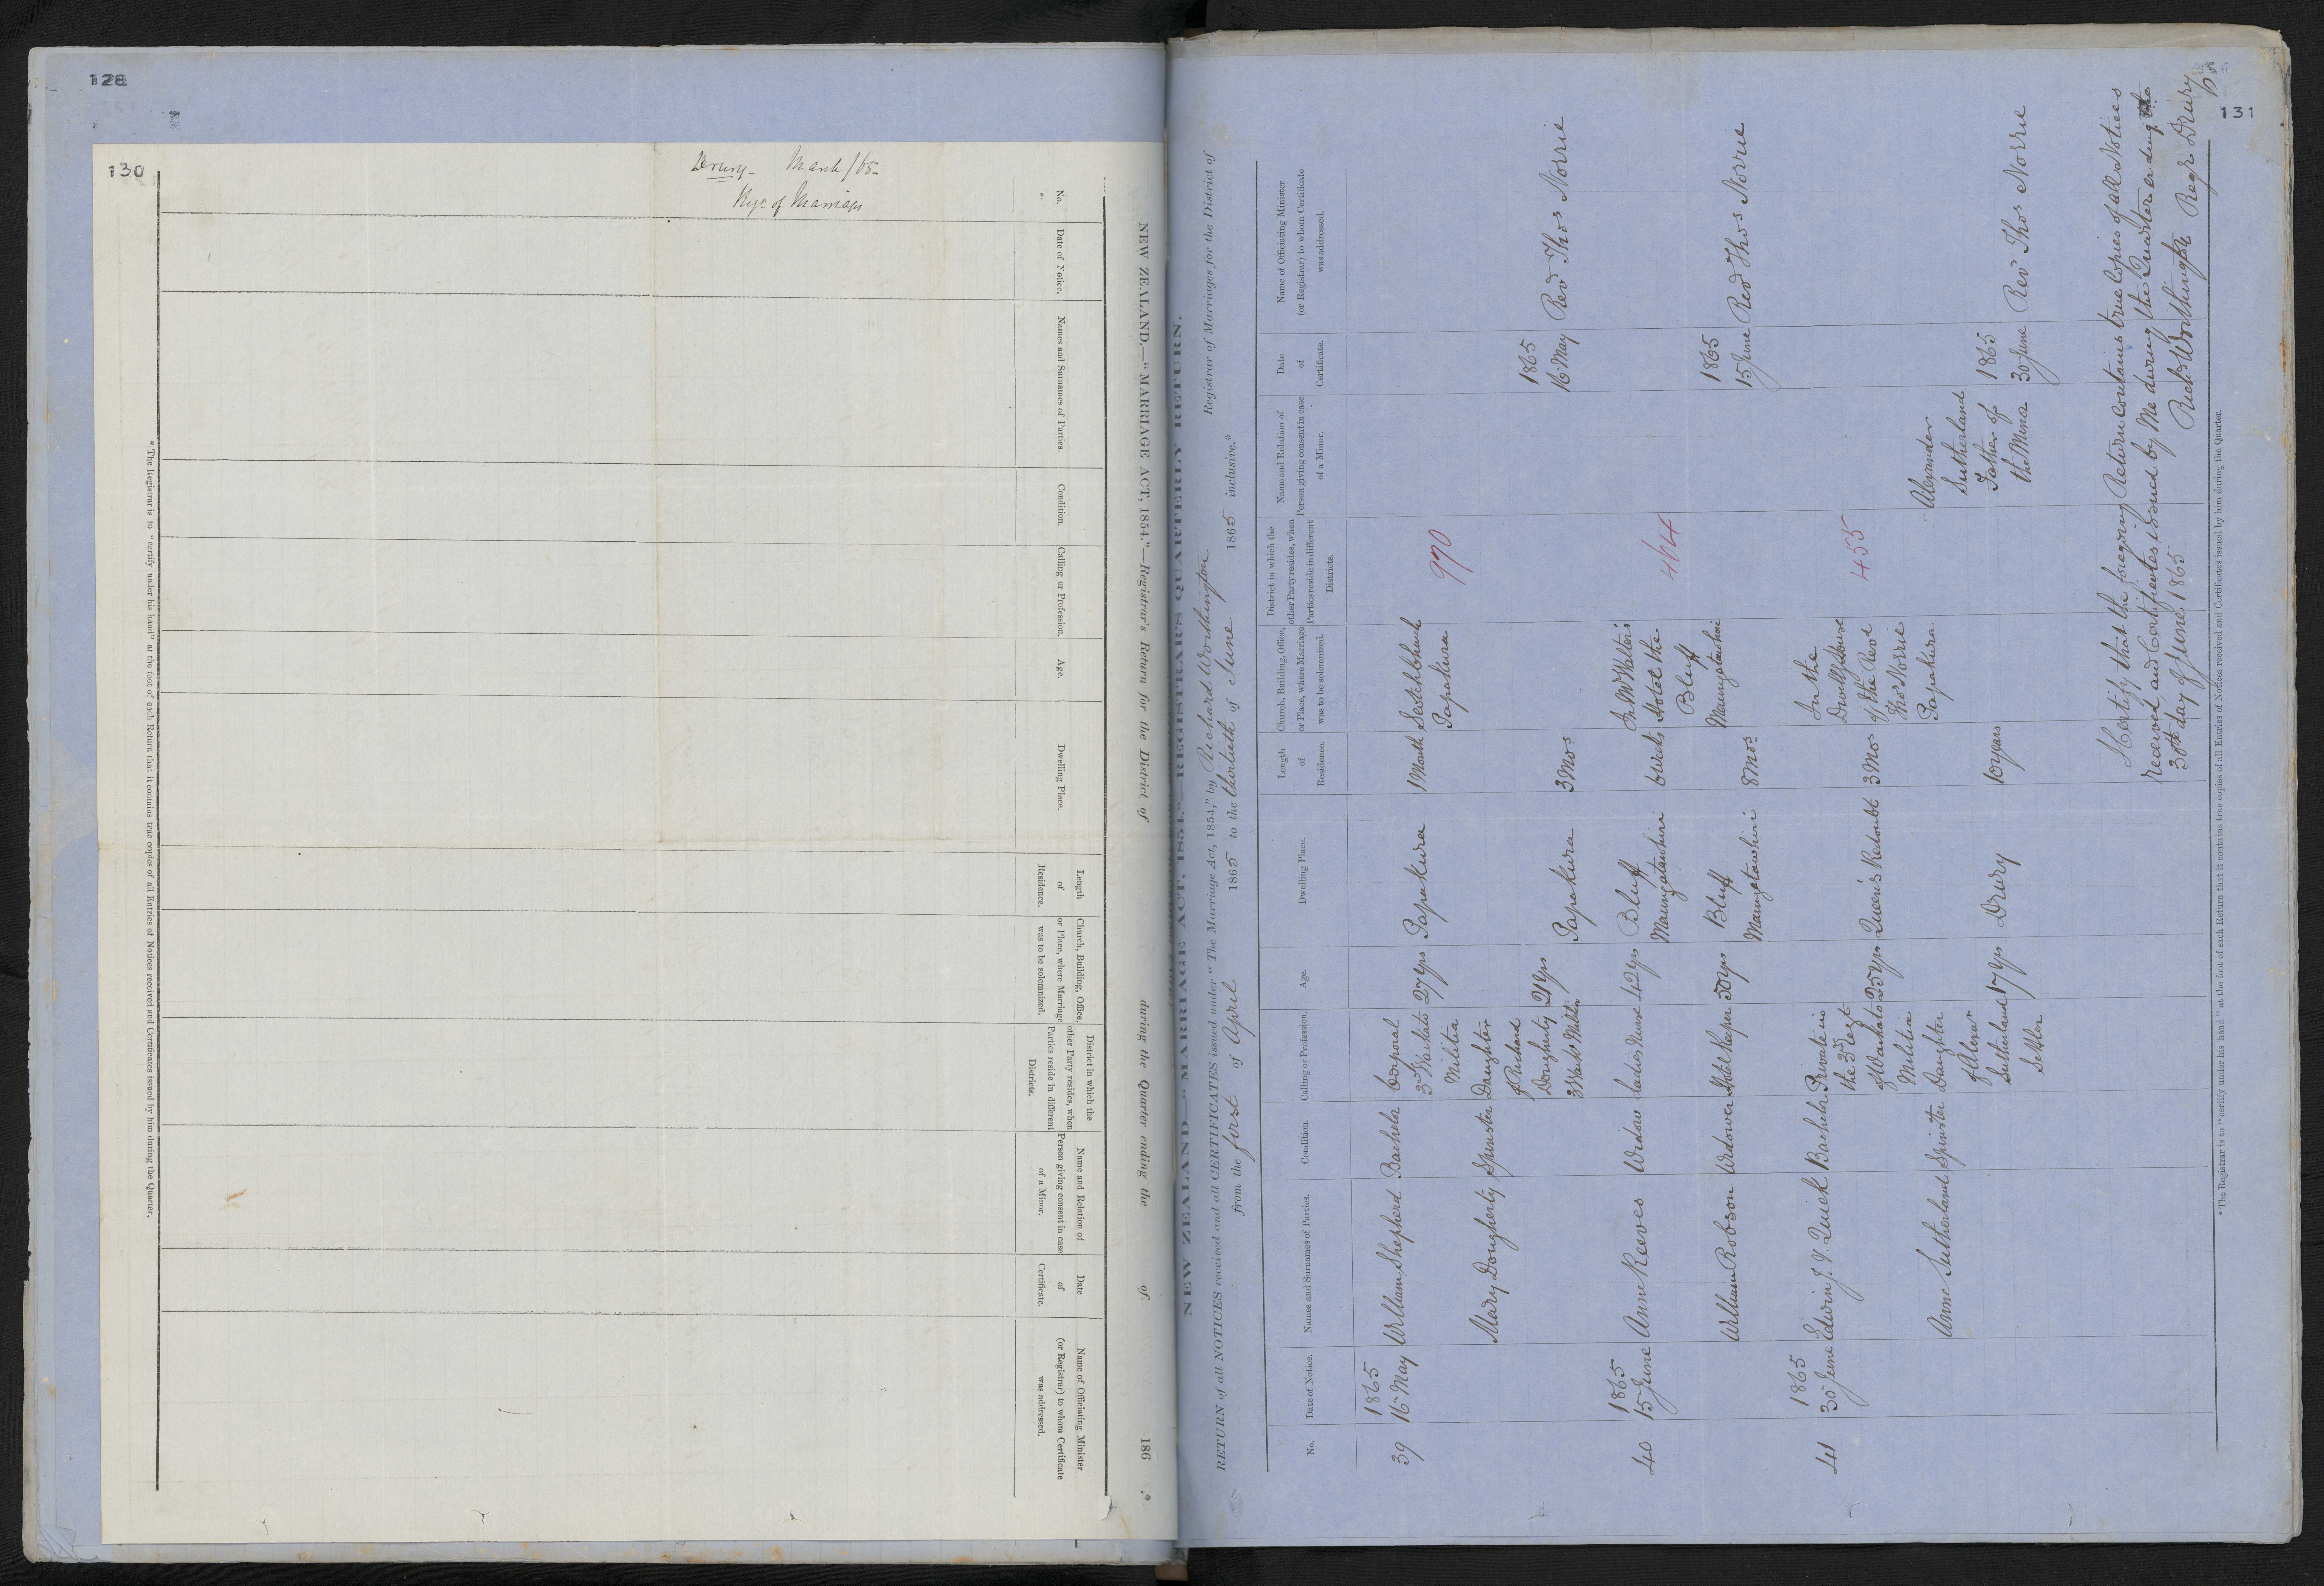 128
130
Drury - March /65-
NEW ZEALAND.—"MARRIAGE ACT, 1854."—Registrar's Return for the District of during the Quarter ending the of 186 .*
No.
Date of Notice.
Names and Surnames of Parties.
Condition.
Calling or Profession.
Age.
Dwelling Place.
Length
of
Residence.
Church, Building, Office,
or Place, where Marriage
was to be solemnized.
District in which the
other Party resides, when
Parties reside in different
Districts.
Name and Relation of
Person giving consent in case
of a Minor.
Date
of
Certificate.
Name of Officiating Minister
(or Registrar) to whom Certificate
was addressed.
*The Registrar is to "certify under his hand" at the foot of each Return that it contains true copies of all Entries of Notices received and Certificates issued by him during the Quarter.
131
NEW ZEALAND—"MARRIAGE ACT, 1854."—REGISTRAR'S QUARTERLY RETURN.
RETURN of all NOTICES received and all CERTIFICATES issued under "The Marriage Act, 1854," by Richard Worthington Registrar of Marriages for the District of
from the first of April 1865 to the thirtieth of June 1865 inclusive.*
No.
Date of Notice.
Names and Surnames of Parties.
Condition.
Calling or Profession.
Age.
Dwelling Place.
Length
of
Residence.
Church, Building, Office,
or Place, where Marriage
was to be solemnized.
District in which the
other Party resides, when
Parties reside in different
Districts.
Name and Relation of
Person giving consent in case
of a Minor.
Date
of
Certificate.
Name of Officiating Minister
(or Registrar) to whom Certificate
was addressed.
39
1865
16 May
William Shepherd
Bachelor
Corporal
3rd Waikato
Militia
27 yrs
Papakura
1 Month
Scotch Church
Papakura
970
Mary Dougherty
Spinster
Daughter
of Richard
Dougherty
21 yrs
Papakura
3 Mos
1865
16 May
Rev Thos Norrie
40
1865
15 June
Anne Reeves
Widow
Ladies Nurse
42 yrs
Bluff
Maungatawhiri
6 weeks
In W Walters
Hotel the
Bluff
Maungatawhiri
464
William Robson
Widower
Hotel Keeper
50 yrs
Bluff
Maungatawhiri
8 mos
1865
15 June
Rev Thos Norrie
41
1865
30 June
Edwin J. Y. Quick
Bachelor
Private in
the 3rd Regt
of Waikato
Militia
25 yrs
Queen's Redoubt
3 Mos
In the
Dwelling House
of the Revd
Thos Norrie
Papakura
455
Anne Sutherland
Spinster
Daughter
of Alexr
Sutherland
Settler
17 yrs
Drury
10 years
Alexander
Sutherland
Father of
the Minor
1865
30 June
Rev Thos Norrie
I Certify that the foregoing Return contains true Copies of all Notices
received, and Certificates issued by Me during the Quarter ending the
30th day of June 1865
Richd Worthington Regr Drury
*The Registrar is to "certify under his hand" at the foot of each Return that it contains true copies of all Entries of Notices received and Certificates issued by him during the Quarter.